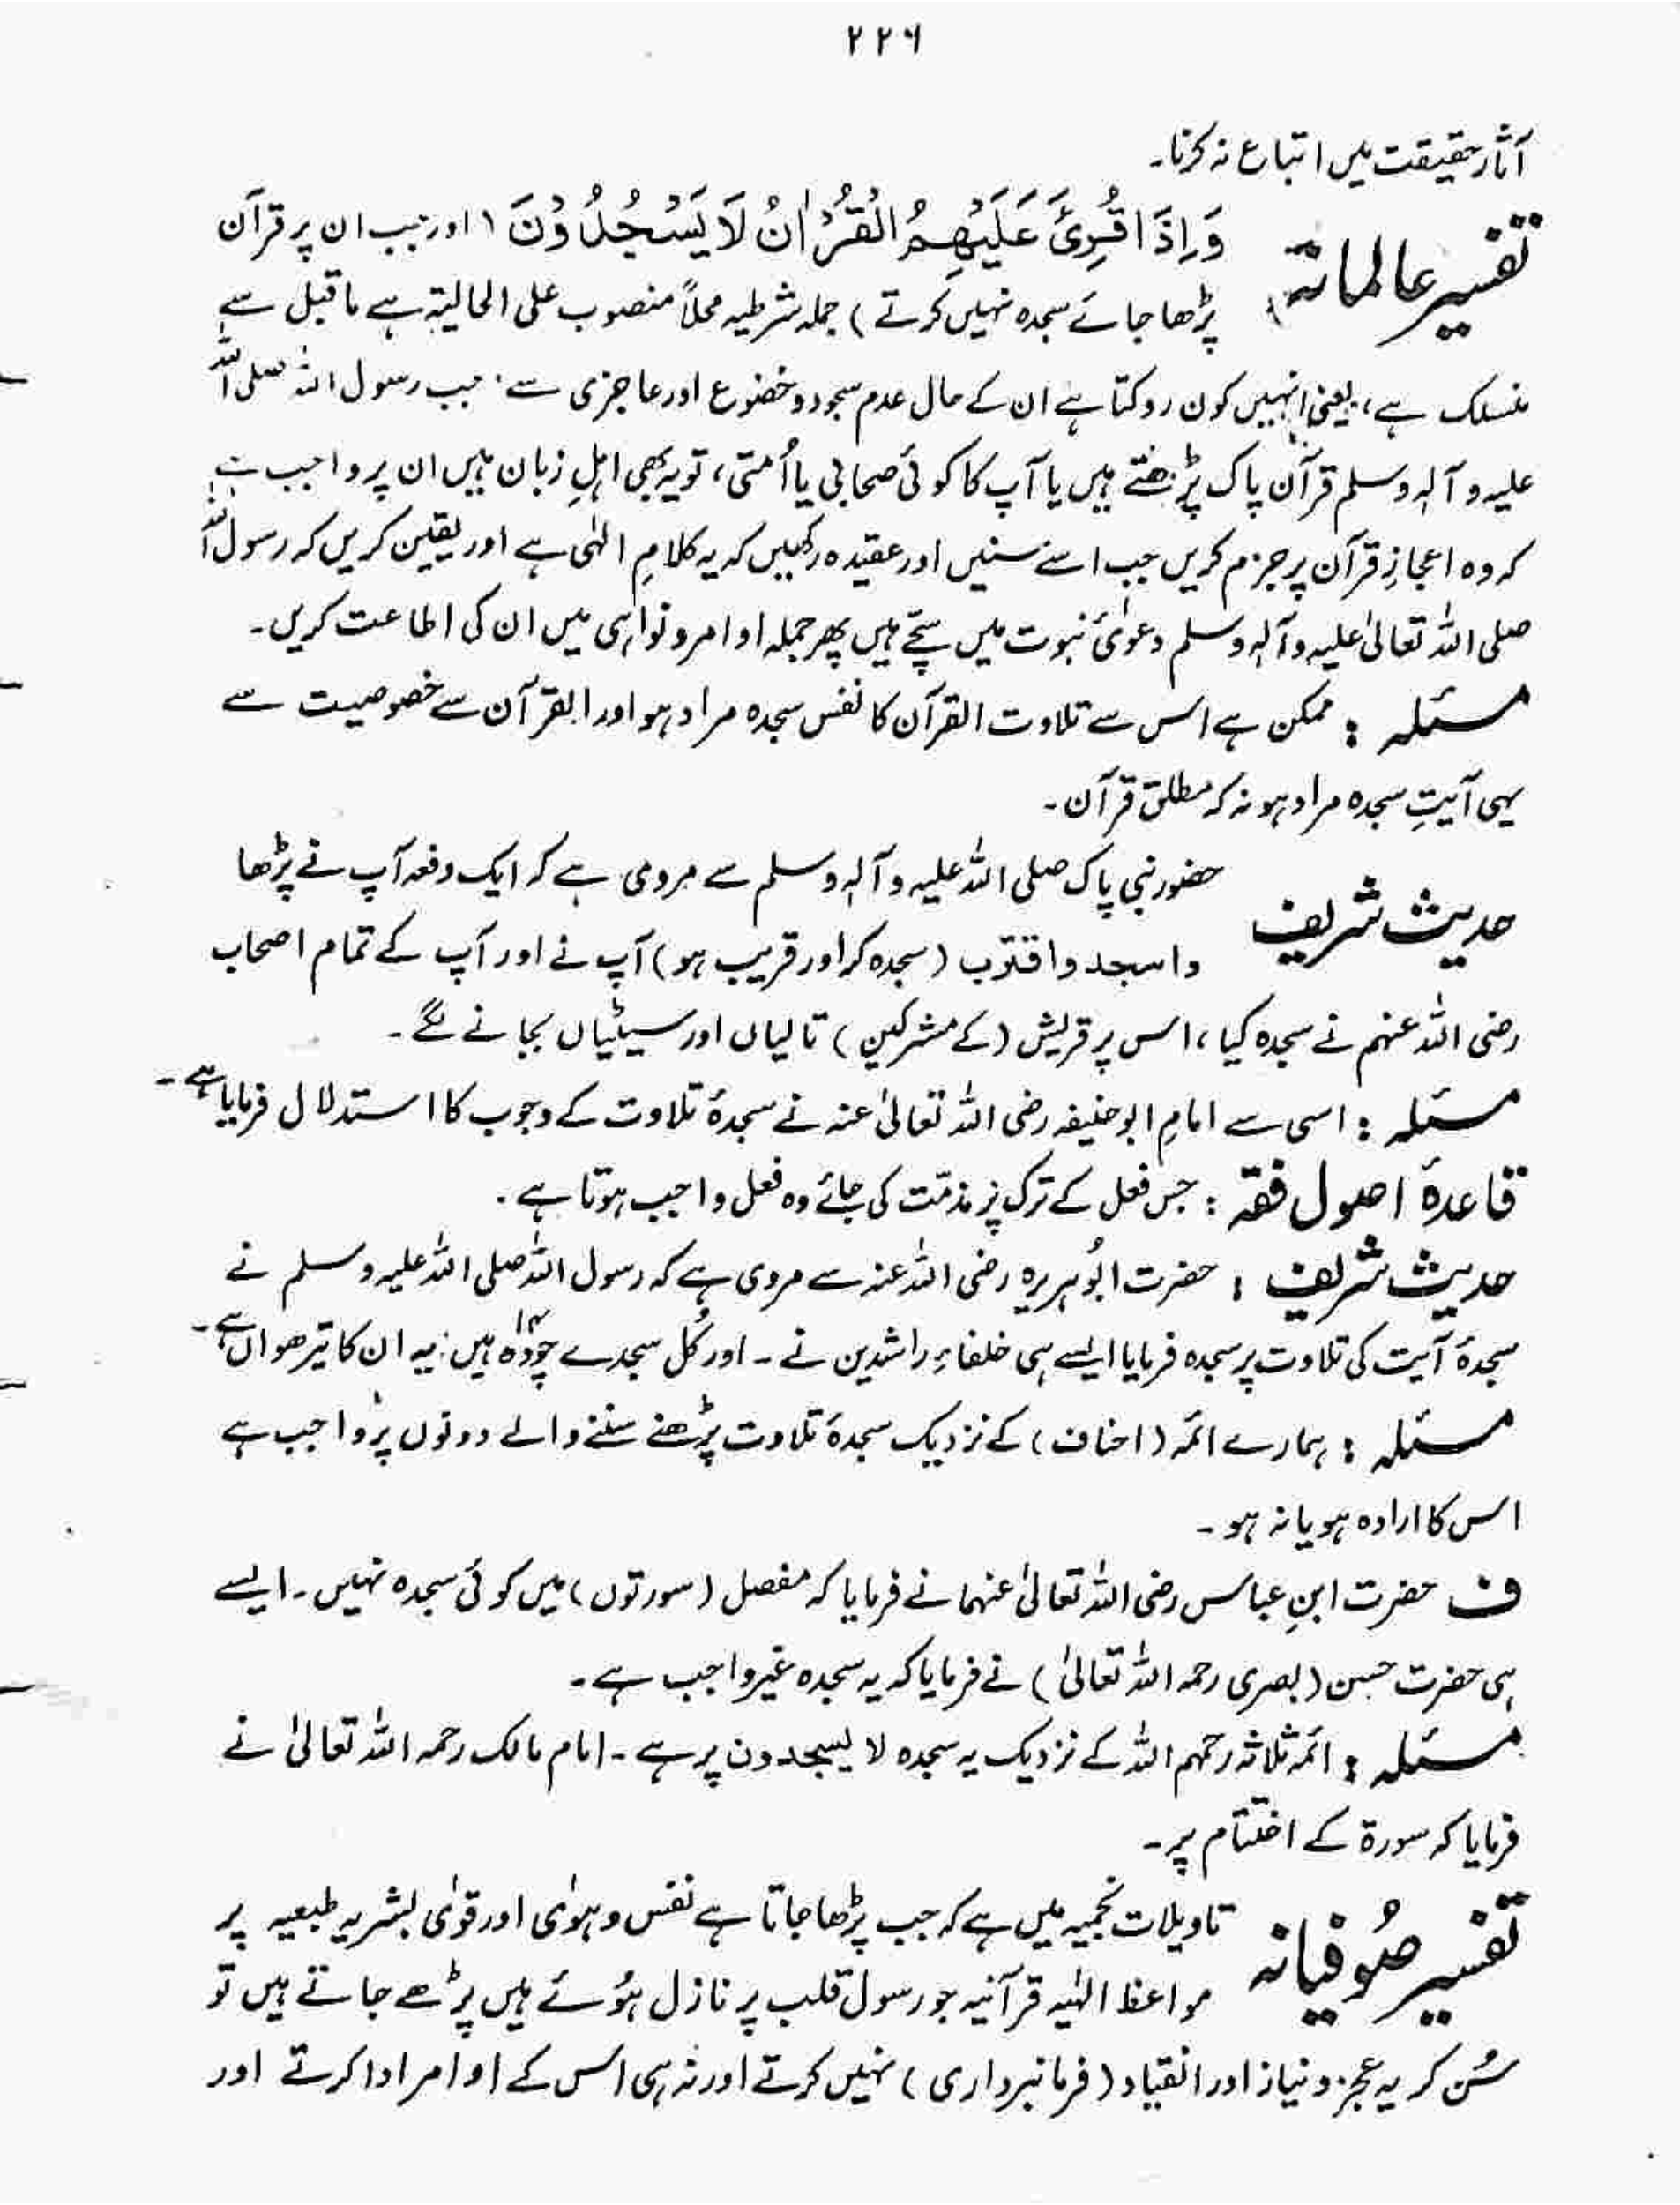 ۲۲۶
آثار حقیقت میں اتباع نہ کرنا۔
تفسیر عالمانہ وَاِذَا قُرِئَ عَلَیْھِمُ الْقُرْاٰنُ لَا یَسْجُدُوْنَ (اور جب ان پر قرآن
پڑھا جائے سجدہ نہیں کرتے) جملہ شرطیہ محلاً منصوب علی الحالیۃ ہے ماقبل سے
منسلک ہے، یعنی انہیں کون روکتا ہے ان کے حال عدم سجود و خضوع اور عاجزی سے۔ جب رسول اللہ صلی اللہ
علیہ وآلہٖ وسلم قرآن پاک پڑھتے ہیں یا آپ کا کوئی صحابی یا اُمتی، تو یہ بھی اہلِ زبان ہیں ان پر واجب ہے
کہ وہ اعجازِ قرآن پر جزم کریں جب اسے سنیں اور عقیدہ رکھیں کہ یہ کلامِ الٰہی ہے اور یقین کریں کہ رسول اللہ
صلی اللہ تعالیٰ علیہ وآلہٖ وسلم دعویٰ نبوت میں سچّے ہیں پھر جملہ اوامر و نواہی میں ان کی اطاعت کریں۔
مسئلہ : ممکن ہے اس سے تلاوت القرآن کا نفس سجدہ مراد ہو اور القرآن سے خصوصیت سے
یہی آیتِ سجدہ مراد ہو نہ کہ مطلق قرآن۔
حدیث شریف حضور نبی پاک صلی اللہ علیہ وآلہٖ وسلم سے مروی ہے کہ ایک دفعہ آپ نے پڑھا
واسجد واقترب (سجدہ کر اور قریب ہو) آپ نے اور آپ کے تمام اصحاب
رضی اللہ عنہم نے سجدہ کیا، اس پر قریش (کے مشرکین) تالیاں اور سیٹیاں بجانے لگے۔
مسئلہ : اسی سے امامِ ابوحنیفہ رضی اللہ تعالیٰ عنہ نے سجدۂ تلاوت کے وجوب کا استدلال فرمایا ہے۔
قاعدۂ اصول فقہ : جس فعل کے ترک پر مذمّت کی جائے وہ فعل واجب ہوتا ہے۔
حدیث شریف : حضرت ابُوہریرہ رضی اللہ عنہ سے مروی ہے کہ رسول اللہ صلی اللہ علیہ وسلم نے
سجدۂ آیت کی تلاوت پر سجدہ فرمایا ایسے ہی خلفاءِ راشدین نے۔ اور کُل سجدے چودہ۱۴ ہیں: یہ ان کا تیرھواں ہے۔
مسئلہ : ہمارے ائمہ (احناف) کے نزدیک سجدۂ تلاوت پڑھنے سننے والے دونوں پر واجب ہے
اس کا ارادہ ہو یا نہ ہو۔
ف حضرت ابنِ عباس رضی اللہ تعالیٰ عنہما نے فرمایا کہ مفصل (سورتوں) میں کوئی سجدہ نہیں۔ ایسے
ہی حضرت حسن (بصری رحمہ اللہ تعالیٰ) نے فرمایا کہ یہ سجدہ غیر واجب ہے۔
مسئلہ : ائمہ ثلاثہ رحمہم اللہ کے نزدیک یہ سجدہ لا یسجدون پر ہے۔ امام مالک رحمہ اللہ تعالیٰ نے
فرمایا کہ سورۃ کے اختتام پر۔
تفسیر صُوفیانہ تاویلات نجمیہ میں ہے کہ جب پڑھا جاتا ہے نفس و ہوٰی اور قوٰی بشریہ طبعیہ پر
مواعظ الٰہیہ قرآنیہ جو رسول قلب پر نازل ہوُئے ہیں پڑھے جاتے ہیں تو
سُن کر یہ عجز و نیاز اور انقیاد (فرمانبرداری) نہیں کرتے اور نہ ہی اس کے اوامر ادا کرتے اور